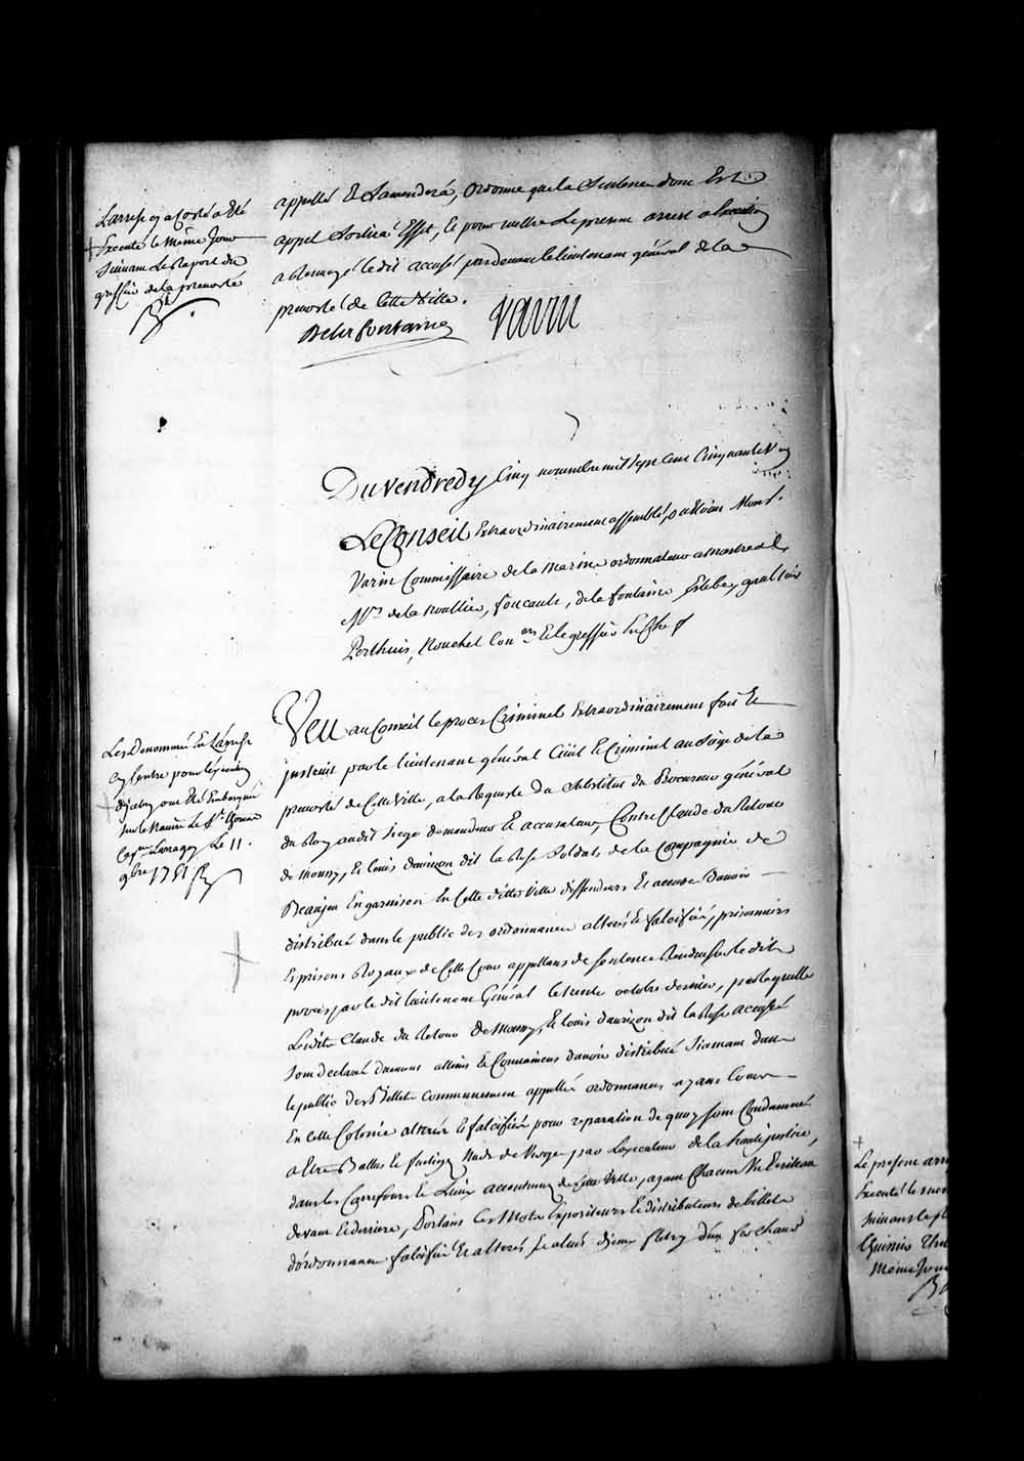 appellé Et Lamendera, Ordonne que la Sentence dont Est
appel Sortira Effet, Et pour mettre Le present arrest a Execution
a Renvoyé le dit accusé pardevant le lieutenant général de la
prevosté de Cette Ville.
Delafontaine Varin
L'arrest cy a Costé a Eté
Executé le Même Jour
Suivant Le Raport du
greffier de la prevosté
Du vendredy Cinq novembre mil sept cent Cinquante Un
Le Conseil Extraordinairement assemblé, ou Etoient Mons.r
Varin Commissaire de la Marine ordonnateur a Montreal,
M.rs de la Noulliere, foucault, de la fontaine, Estebe, gaultier
Perthuis, Nouchet Con.ers Et le greffier En Chef
Les Denommés En L'arrest
Cy Contre pour l'Execution
D'jceluy ont Eté Embarqués
sur le Navire Le St.
Cap.ne Larragoy Le 11.
9bre 1751
Veu au Conseil le procès Criminel Extraordinairement fait Et
jnstruit par le lieutenant général Civil Et Criminel au Siége de la
prevosté de Cette Ville, a la Requeste du Substitut du Procureur général
du Roy audit Siege demandeur Et accusateur, Contre Claude du Retour
de Monsy, Et Louis Dauvizon dit la Rose Soldats de la Compagnie de
Beaujeu En garnison En Cette ditte Ville deffendeurs Et accusés Davoir
distribué dans le public des ordonnances alterés Et falcifiés, prisonniers
Es prisons Royaux de Cette Cour appellans de Sentence Rendue sur le dit
procès par le dit lieutenant Général le trente octobre dernier, par laquelle
Lesdits Claude du Retour de Monsy, Et Louis Dauvizon dit la Rose accusés
Sont declarés Duement atteins Et Convaincus d'avoir distribué Sciamant dans
le public des Billets communement appellés ordonnances ayans Cours
En Cette Colonie alterés Et falcifiés pour reparation de quoy sont Condamnés
a Etre Battus Et fustigés Nuds de Verges par L'executeur de la haute justice,
dans les Carrefours Et Lieux accoutumés de Cette Ville, ayant Chacun Un Ecriteau
devant Et derriere, Portans Ces Mots Expositeurs Et distributeurs de billets
d'ordonnances falcifiés Et alterés Et a
fletry d'un fer Chaud
Le present arr
Executé le mes
Suivant le
Même Jour